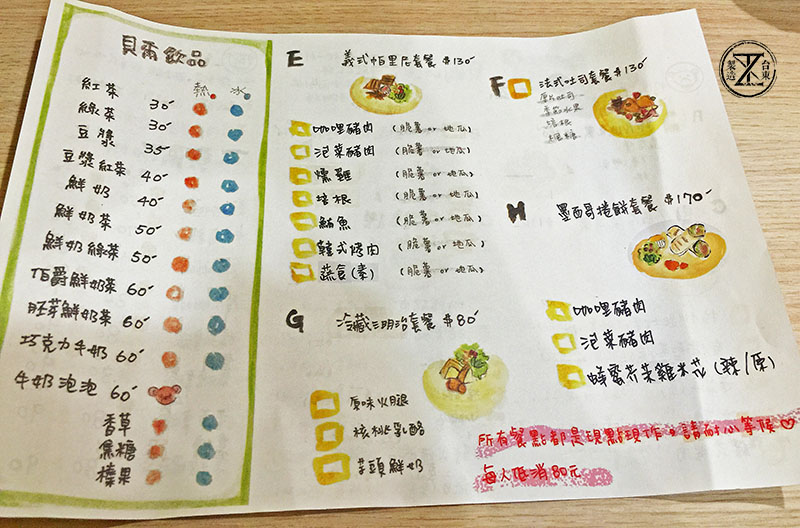 貝爾飲品
熱 冰
紅茶 30
綠茶 30
豆漿 35
豆漿紅茶 40
鮮奶 40
鮮奶茶 50
鮮奶綠茶 50
伯爵鮮奶茶 60
胚芽鮮奶茶 60
巧克力牛奶 60
牛奶泡泡 60
香草
焦糖
榛果
E 義式帕里尼套餐 $130
咖哩豬肉 (脆薯 or 地瓜)
泡菜豬肉 (脆薯 or 地瓜)
燻雞 (脆薯 or 地瓜)
培根 (脆薯 or 地瓜)
鮪魚 (脆薯 or 地瓜)
韓式烤肉 (脆薯 or 地瓜)
蔬食(素) (脆薯 or 地瓜)
G 冷藏三明治套餐 $80
原味火腿
核桃乳酪
芋頭鮮奶
F 法式吐司套餐 $130
厚片吐司
季節水果
培根
楓糖
H 墨西哥捲餅套餐 $170
咖哩豬肉
泡菜豬肉
蜂蜜芥茉雞米花 (辣/原)
所有餐點都是現點現作,請耐心等候♡
每人低消80元
台東
製造